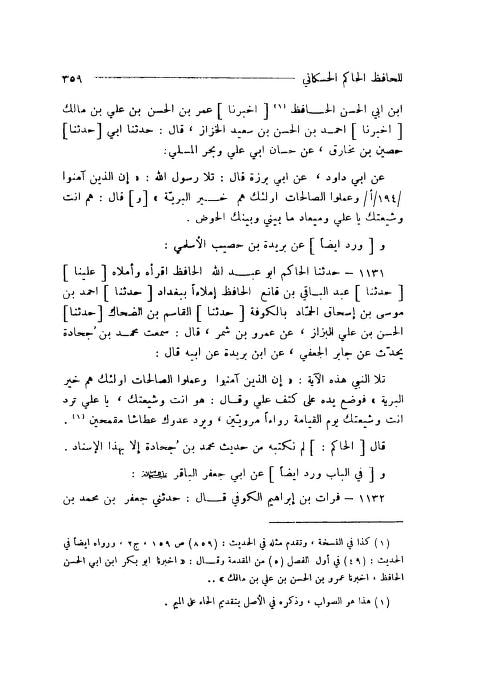 للحافظ الحاكم الحسكاني ٣٥٩
ابن ابي الحسن الحـافظ (١) [ اخبرنا ] عمر بن الحسن بن علي بن مالك
[ اخبرنا ] احمد بن الحسن بن سعيد الخزاز ، قال : حدثنا ابي [حدثنا]
حصين بن مخارق ، عن حسان ابي علي وبحر المسلي:
عن ابي داود ، عن ابي برزة قال : تلا رسول الله : « إن الذين آمنوا
/١٩٤/أ/ وعملوا الصالحات اولئك هم خير البريّة » [و] قال : هم انت
وشيعتك يا علي وميعاد ما بيني وبينك الحوض .
و [ ورد ايضاً ] عن بريدة بن حصيب الأسلمي :
١١٣١ – حدثنا الحاكم ابو عبد الله الحافظ اقرأه وأملاه [ علينا ]
[ حدثنا ] عبد الباقي بن قانع الحافظ إملاءاً ببغداد [ حدثنا ] احمد بن
موسى بن إسحاق الحمّاد بالكوفة [ حدثنا ] القاسم بن الضحاك [حدثنا]
الحسن بن علي البزاز ، عن عمرو بن شمر ، قال : سمعت محمد بن جحادة
يحدّث عن جابر الجعفي ، عن ابن بريدة عن ابيه قال :
تلا النبي هذه الآية : « إن الذين آمنوا وعملوا الصالحات اولئك هم خير
البرية » فوضع يده على كتف علي وقال : هو انت وشيعتك ، يا علي ترد
انت وشيعتك يوم القيامة رواءاً مرويّين ، ويرد عدوك عطاشا مقمحين (١) .
قال [ الحاكم : ] لم نكتبه من حديث محمد بن جحادة إلا بهذا الإسناد .
و [ في الباب ورد ايضاً ] عن ابي جعفر الباقر :
١١٣٢ – فرات بن إبراهيم الكوفي قـال : حدثني جعفر بن محمد بن
(١) كذا في النسخة ، وتقدم مثله في الحديث : (٨٥٩) ص ١٥٩ ، ج٢ ، ورواه ايضاً في
الحديث : (٤٩) في أول الفصل (٥) من المقدمة وقـال : « اخبرنا ابو بكر ابن ابي الحسن
الحافظ ، اخبرنا عمرو بن الحسن بن علي بن مالك » ..
(١) هذا هو الصواب ، وذكره في الأصل بتقديم الحاء على الميم .